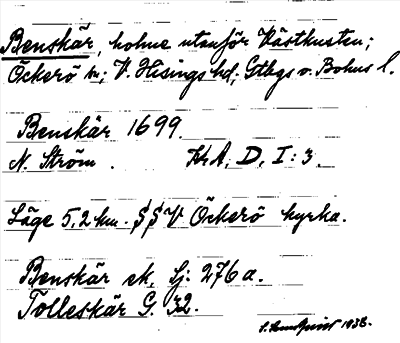 Benskär, holme utanför Västkusten;
Öckerö sn; V. Hisings hd; Gtbgs o. Bohus l.
Benskär 1699.
N. Ström. KrA, D, I: 3.
Läge 5,2 km. SSV Öckerö kyrka.
Benskär ek. Sj: 276a.
Tolleskär G. 32.
1938.